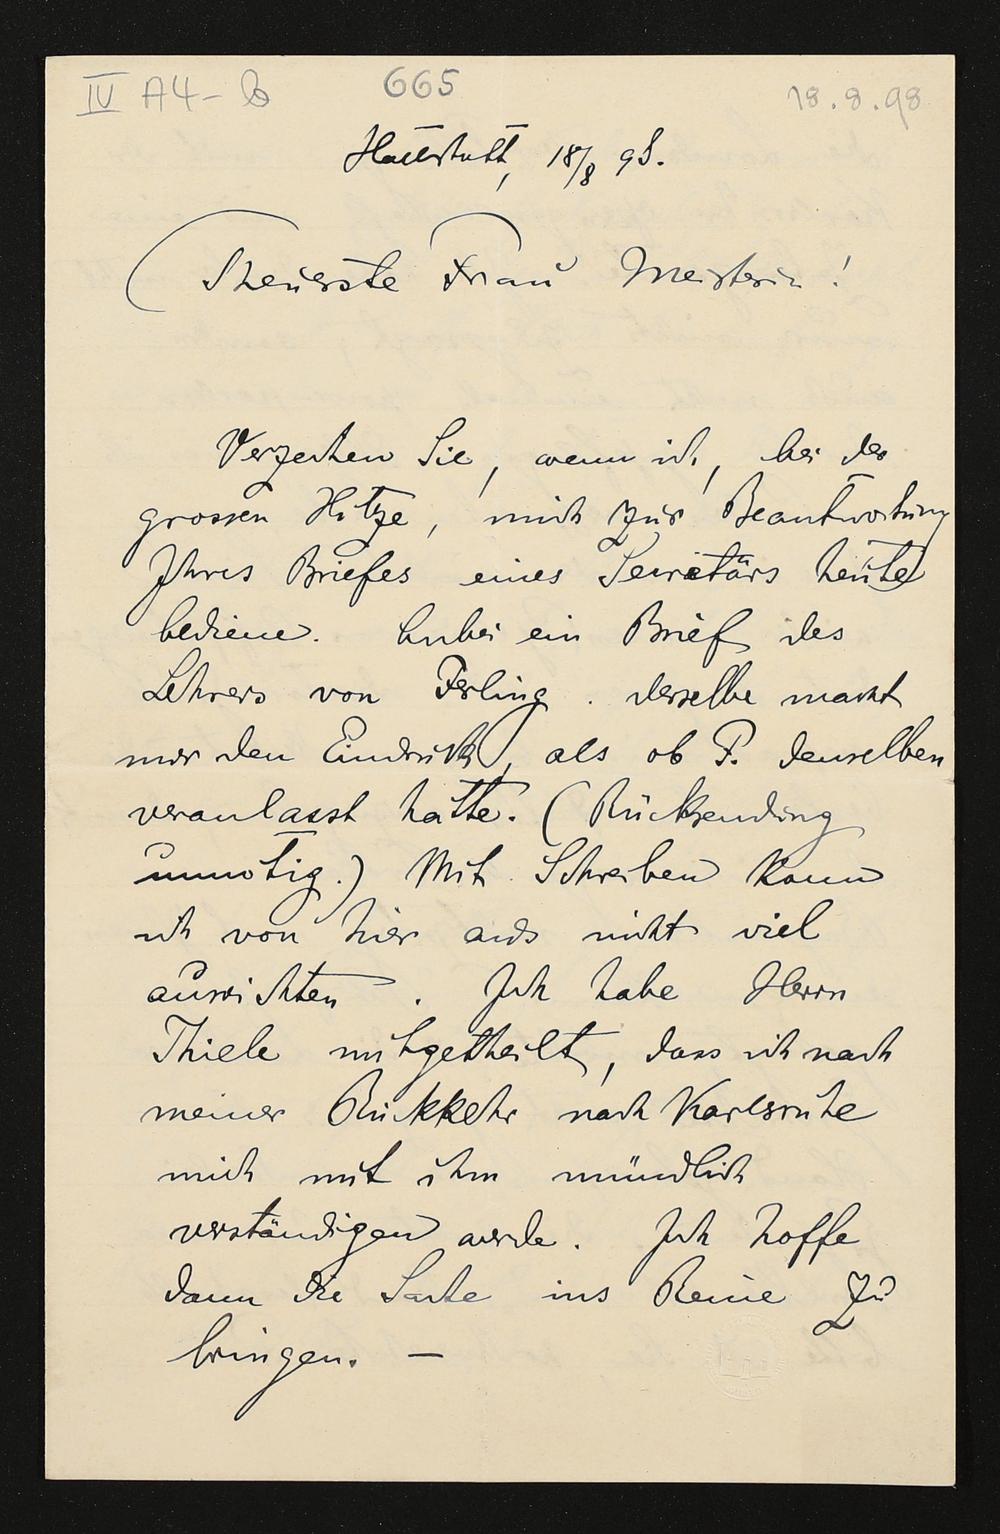 IV A4-
665
18.8.98
Hallstatt, 18/8 98.
Theuerste Frau Meisterin!
Verzeihen Sie, wenn ich, bei der
grossen Hitze, mich zur Beantwortung
Ihres Briefes eines Secretärs heute
bediene. Anbei ein Brief des
Lehrers von Ferling. derselbe macht
mir den Eindruck, als ob P. denselben
veranlasst hätte. (Rücksendung
unnötig.) Mit Schreiben kann
ich von hier aus nicht viel
ausrichten. Ich habe Herrn
Thiele mitgetheilt, dass ich nach
meiner Rückkehr nach Karlsruhe
mich mit ihm mündlich
verständigen werde. Ich hoffe
dann die Sache ins Reine zu
bringen. —